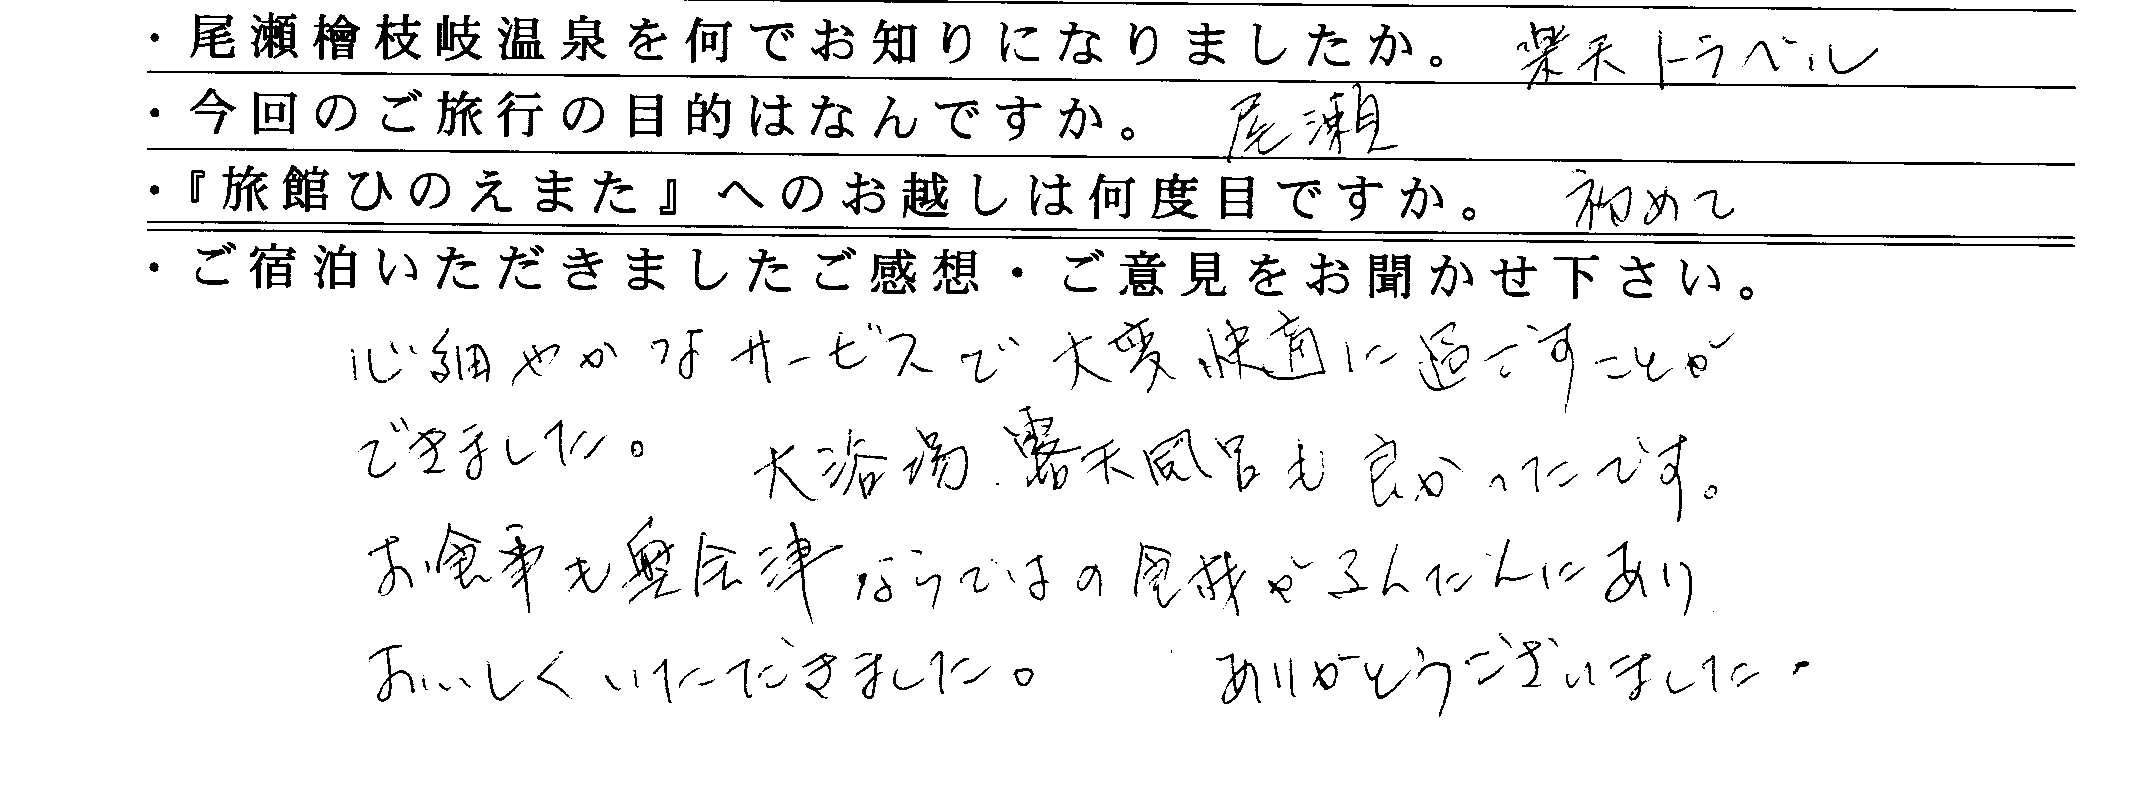 ・尾瀬檜枝岐温泉を何でお知りになりましたか。 楽天トラベル
・今回のご旅行の目的はなんですか。 尾瀬
・『旅館ひのえまた』へのお越しは何度目ですか。 初めて
・ご宿泊いただきましたご感想・ご意見をお聞かせ下さい。
心細やかなサービスで大変快適に過ごすことが
できました。 大浴場、露天風呂も良かったです。
お食事も奥会津ならではの食材がふんだんにあり
おいしくいただきました。 ありがとうございました。